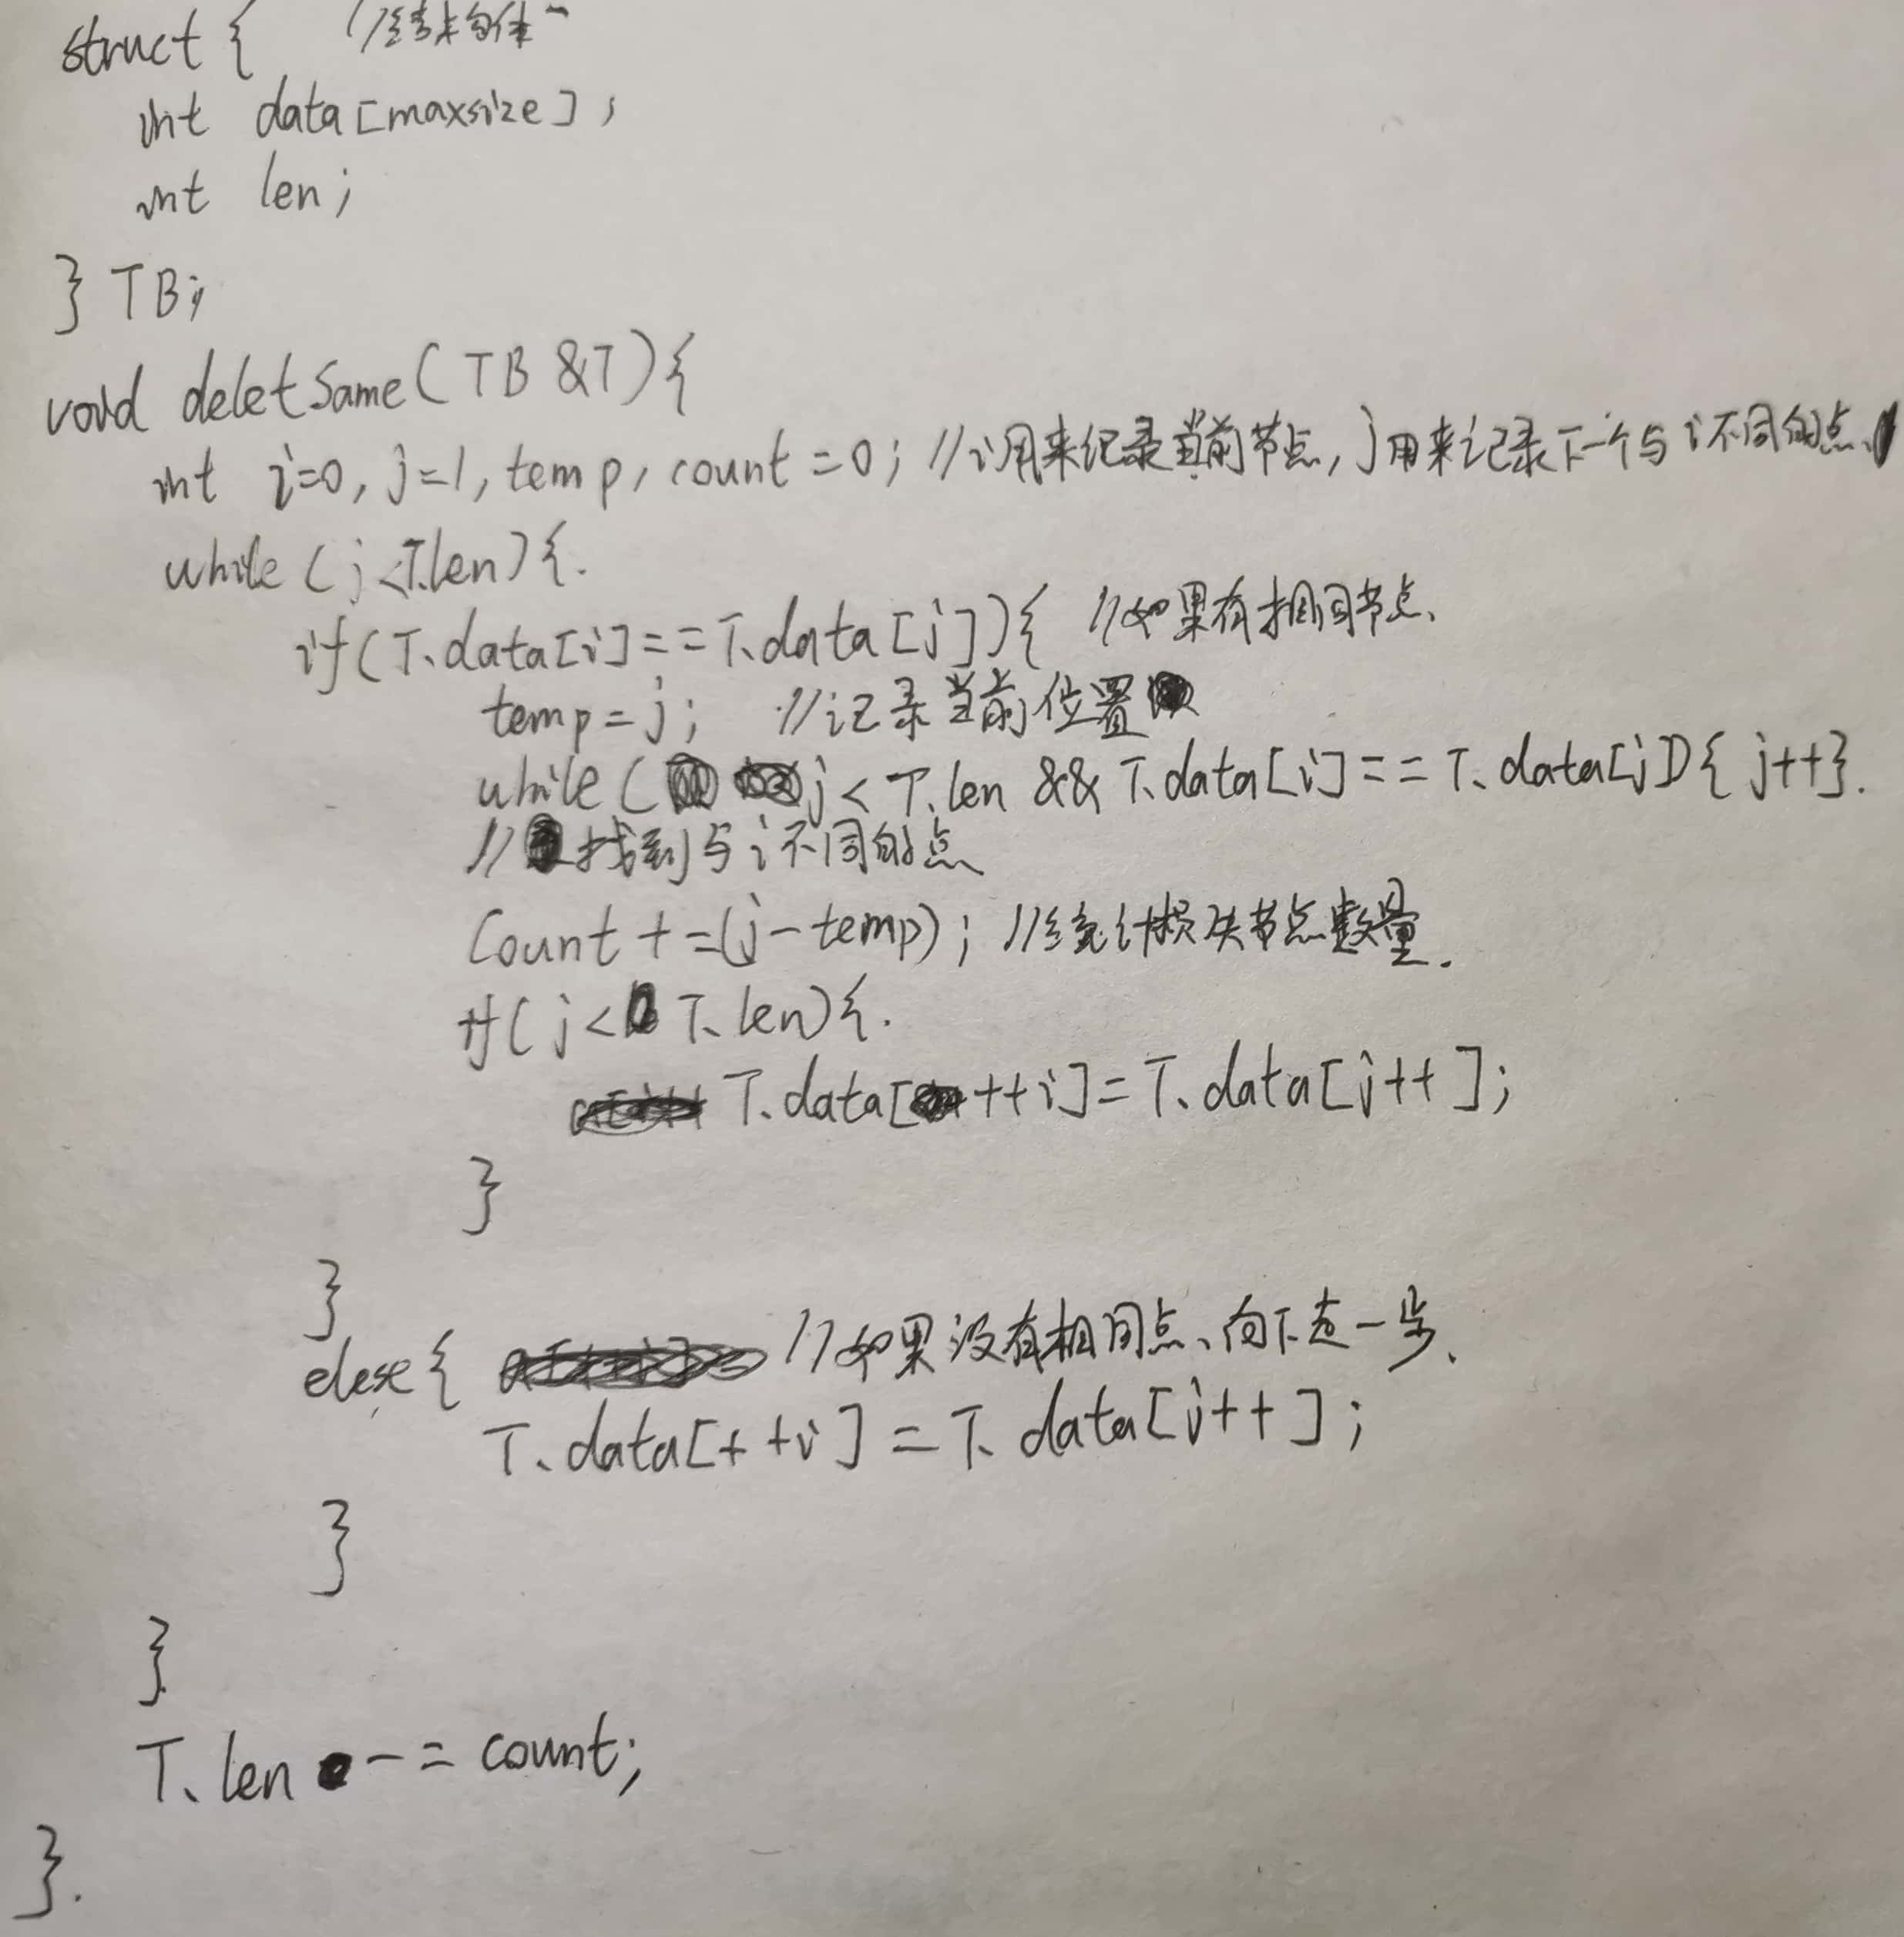 struct { //结构体
int data[maxsize];
int len;
} TB;
void deletSame(TB &T){
int i=0, j=1, temp, count=0; //i用来纪录当前节点, j用来记录下一个与i不同的点、
while (j<T.len){.
if(T.data[i]==T.data[j]){ //如果有相同节点、
temp=j; //记录当前位置
while( j<T.len && T.data[i]==T.data[j]){ j++}.
//找到与i不同的点
Count +=(j-temp); //统计损失节点数量.
if(j< T.len){.
T.data[++i]=T.data[j++];
}
}
else{ //如果没有相同点、向下走一步、
T.data[++i]=T.data[j++];
}
}
T.len -= count;
}.